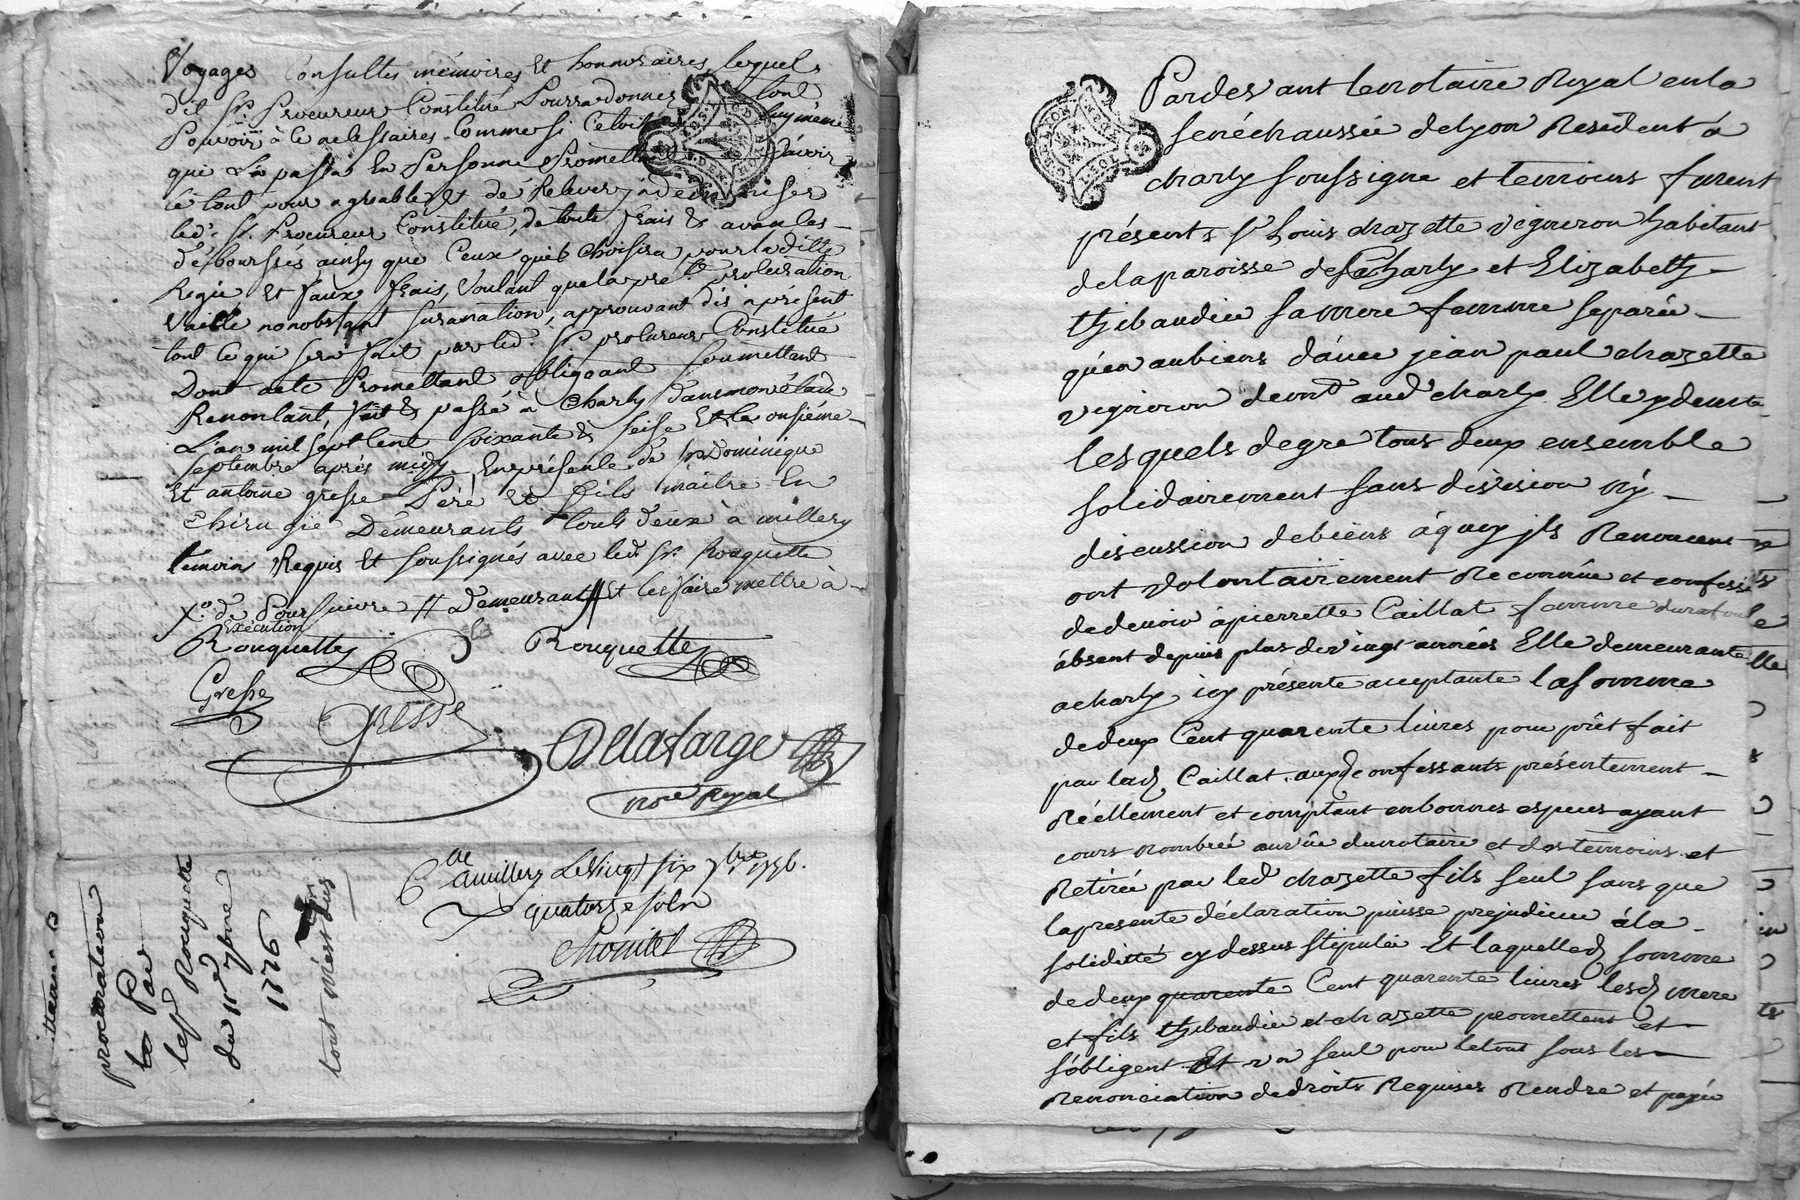 Voyages Consultes mémoires et honnoraires lequels
dit Sr. Procureur Constitué Pourra donner tout
Pouvoir à ce nécéssaires Comme si luy même
qui La passa En Personne Promettant d'avoir
le tout pour agréable et de Relever
led. Sr. Procureur Constitué, de touts frais & avances
déboursés ainsy que Ceux qu'il Choisira pour laditte
Regie Et faux frais, Voulant que la pnte procuration
Vaille nonobstant suranation, approuvant dés à présent
tout ce qui sera fait par led. Sr. procureur Constitué
Dont acte Promettant obligeant soumettant
Renonçant, fait & passé à Charly dans mon étude
L'an mil sept Cent soixante & seise Et le onsiéme
Septembre aprés midy En présence de Sr Dominique
Et antoine gresse Peré et fils maitre En
Chirugie Demeurants touts deux à millery
témoins Requis Et soussignés avec led. Sr. Rouquette
Xo. de Poursuivre // Demeurant // Et les faire mettre à
Exécution
Rouquette Rouquette
Gresse
Gresse
Delafarge
nore Royal
Cle a millery Le Vingt six 7bre 1776.
quatorze sols
procuration
Par
led Rouquette
du 11e 7bre
1776
tout m'est dus
Pardevant le notaire Royal en la
senéchaussée de lyon Résident á
charly soussigné et temoins furent
présents sr Louis chazette vigneron habitant
de la paroisse de Charly et Elizabeth
thibaudier sa mere femme separée
quén aubiens d'avec jean paul chazette
vigneron demt aud charly Elle y demte
les quels de gré tous deux ensemble
solidairement sans division ny
discussion de biens áquoy jls Renoncent
ont volontairement Reconnüe et confessé
de devoir á pierrette Caillat femme
ábsent depuis plus de vingt années Elle demeurante
a charly icy présente acceptante la somme
de deux Cent quarente livres pour prêt fait
par lad Caillat auxd confessants présentement
Réellement et comptant en bonnes especes ayant
cours nombrée au vûe du notaire et des temoins et
Retirée par led chazette fils seul sans que
la presente déclaration puisse prejudicier á la
solidité cy dessus stipulée Et laquelled somme
de deux quarente Cent quarente livres lesd mere
et fils thibaudier et chazette promettent et
s'óbligent Et un seul pour le tout sous les
Renonciation de droits Requises Rendre et payer